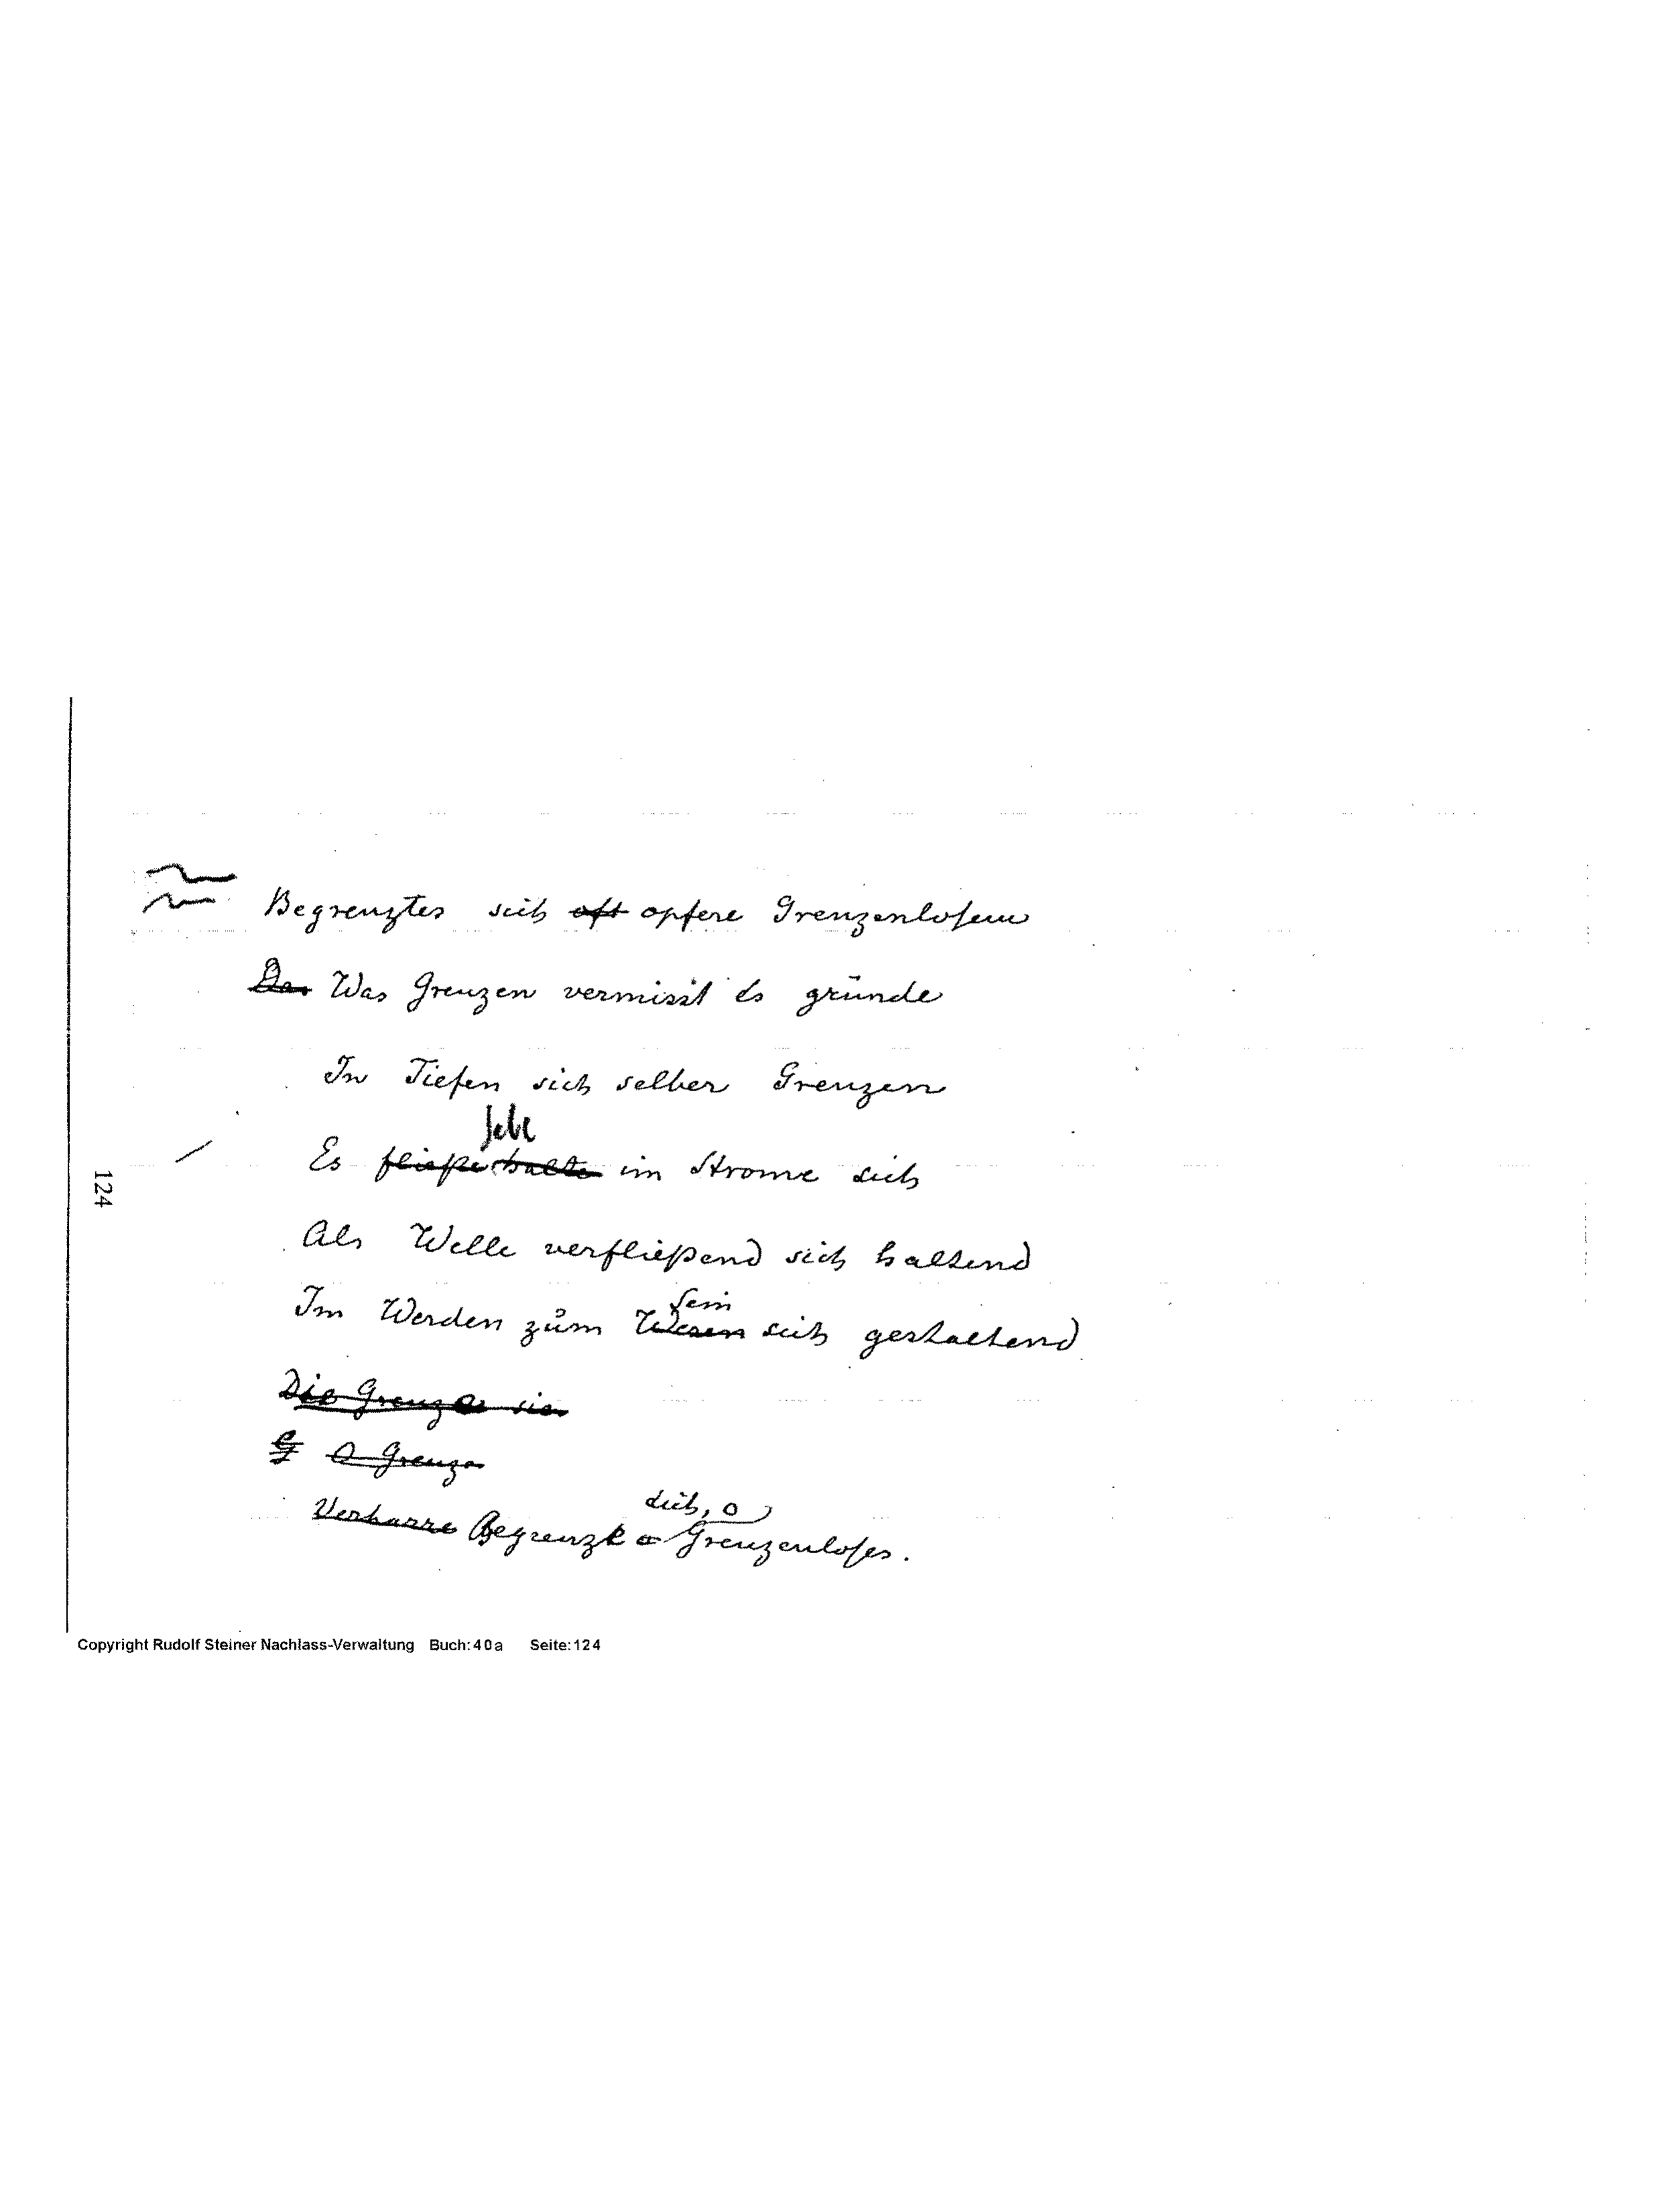 Begrenztes sich oft opfere Grenzenlosem
Das Was Grenzen vermisst es gründe
In Tiefen sich selber Grenzen
hebe
Es fließe halte im Strome sich
Als Welle verfließend sich haltend
Sein
Im Werden zum Wesen sich gestaltend
Die Grenze sie
O Grenze
dich, o
Verharre Begrenze o Grenzenloses.
124
Copyright Rudolf Steiner Nachlass-Verwaltung Buch: 40a Seite: 124